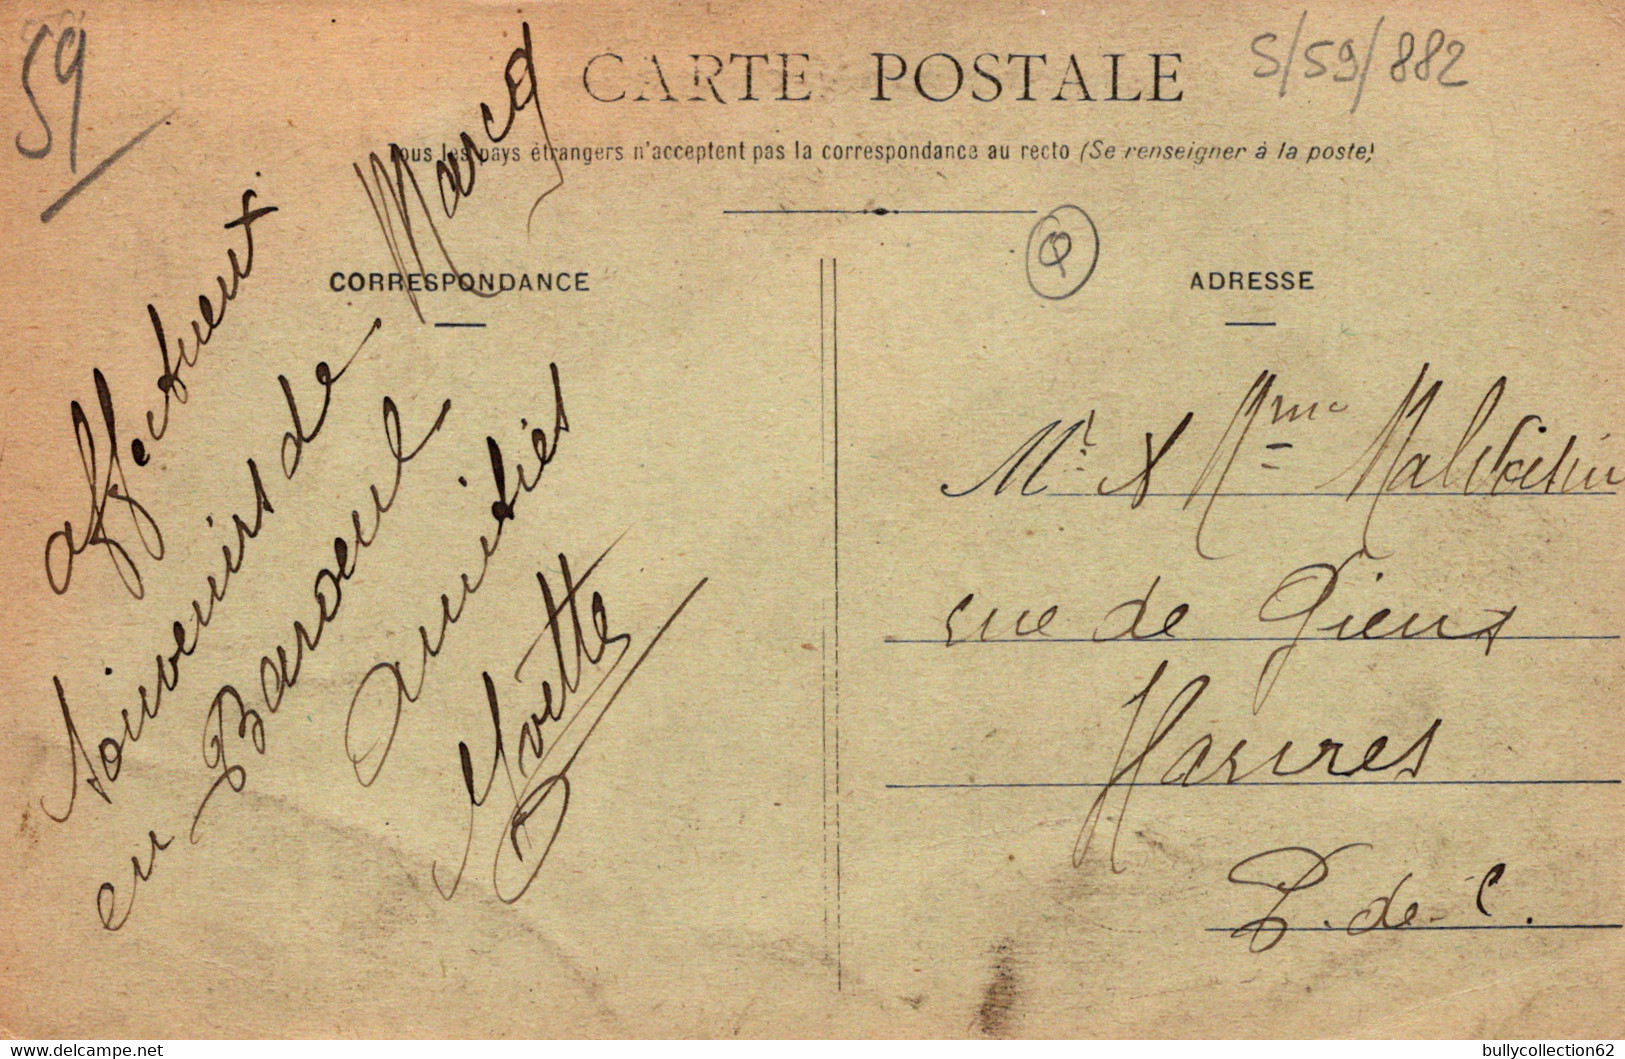 59
CARTE POSTALE
S/59/882
Tous les pays étrangers n'acceptent pas la correspondance au recto (Se renseigner à la poste)
CORRESPONDANCE
ADRESSE
affectueux
souvenirs de Marcq
en Baroeul
amitiés
Yvette
Mr & Mme Malvoisin
rue de Gieux
P. de C.
www.delcampe.net
bullycollection62